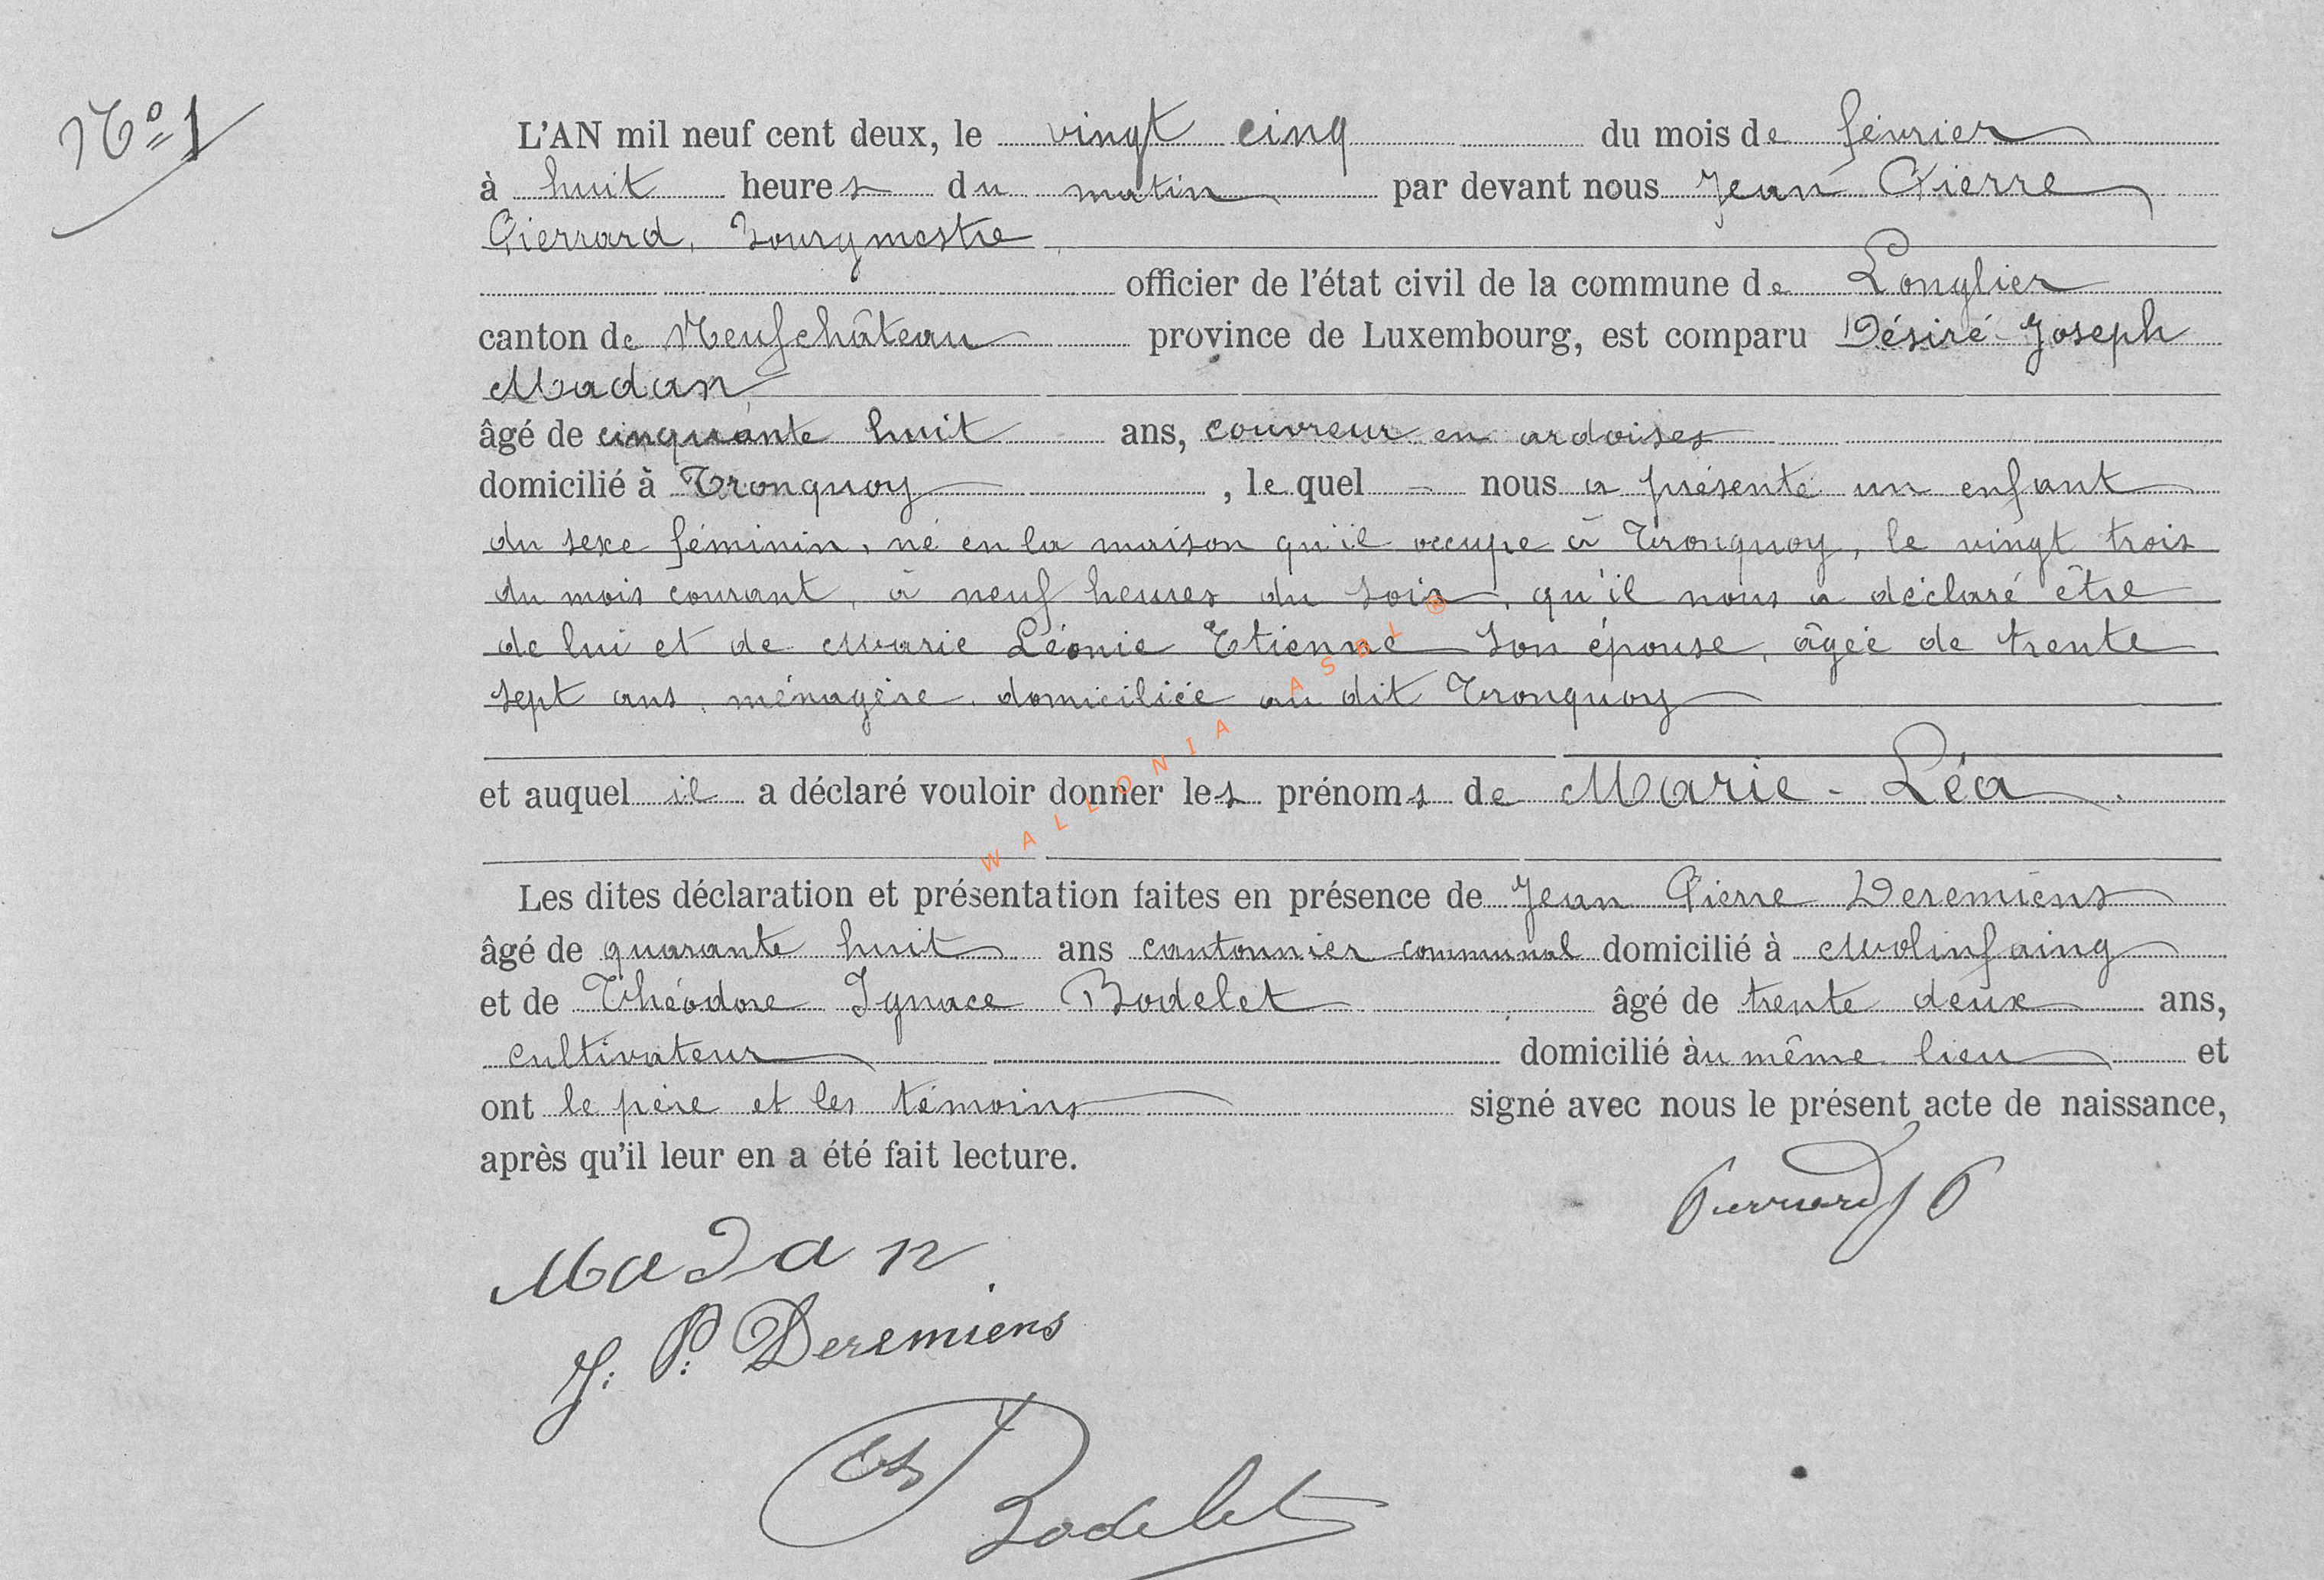 Nº 1
L'AN mil neuf cent deux, le vingt cinq du mois de février
à huit heures du matin par devant nous Jean Pierre
Pierrard, Bourgmestre
officier de l'état civil de la commune de Longlier
canton de Neufchâteau province de Luxembourg, est comparu Désiré Joseph
Madan,
âgé de cinquante huit ans, couvreur en ardoises
domicilié à Tronquoy, le quel nous a présenté un enfant
du sexe féminin, né en la maison qu'il occupe à Tronquoy, le vingt trois
du mois courant, à neuf heures du soir, qu'il nous a déclaré être
de lui et de Marie Léonie Etienne son épouse, âgée de trente
sept ans, ménagère, domiciliée au dit Tronquoy
et auquel il a déclaré vouloir donner les prénoms de Marie-Léa.
Les dites déclaration et présentation faites en présence de Jean Pierre Deremiens
âgé de quarante huit ans cantonnier communal domicilié à Molinfaing
et de Théodore Ignace Bodelet âgé de trente deux ans,
cultivateur domicilié àu même lieu et
ont le père et les témoins signé avec nous le présent acte de naissance,
après qu'il leur en a été fait lecture.
Pierrard J P
Madan
J. P. Deremiens
Th Bodelet
WALLONIA ASBL ®